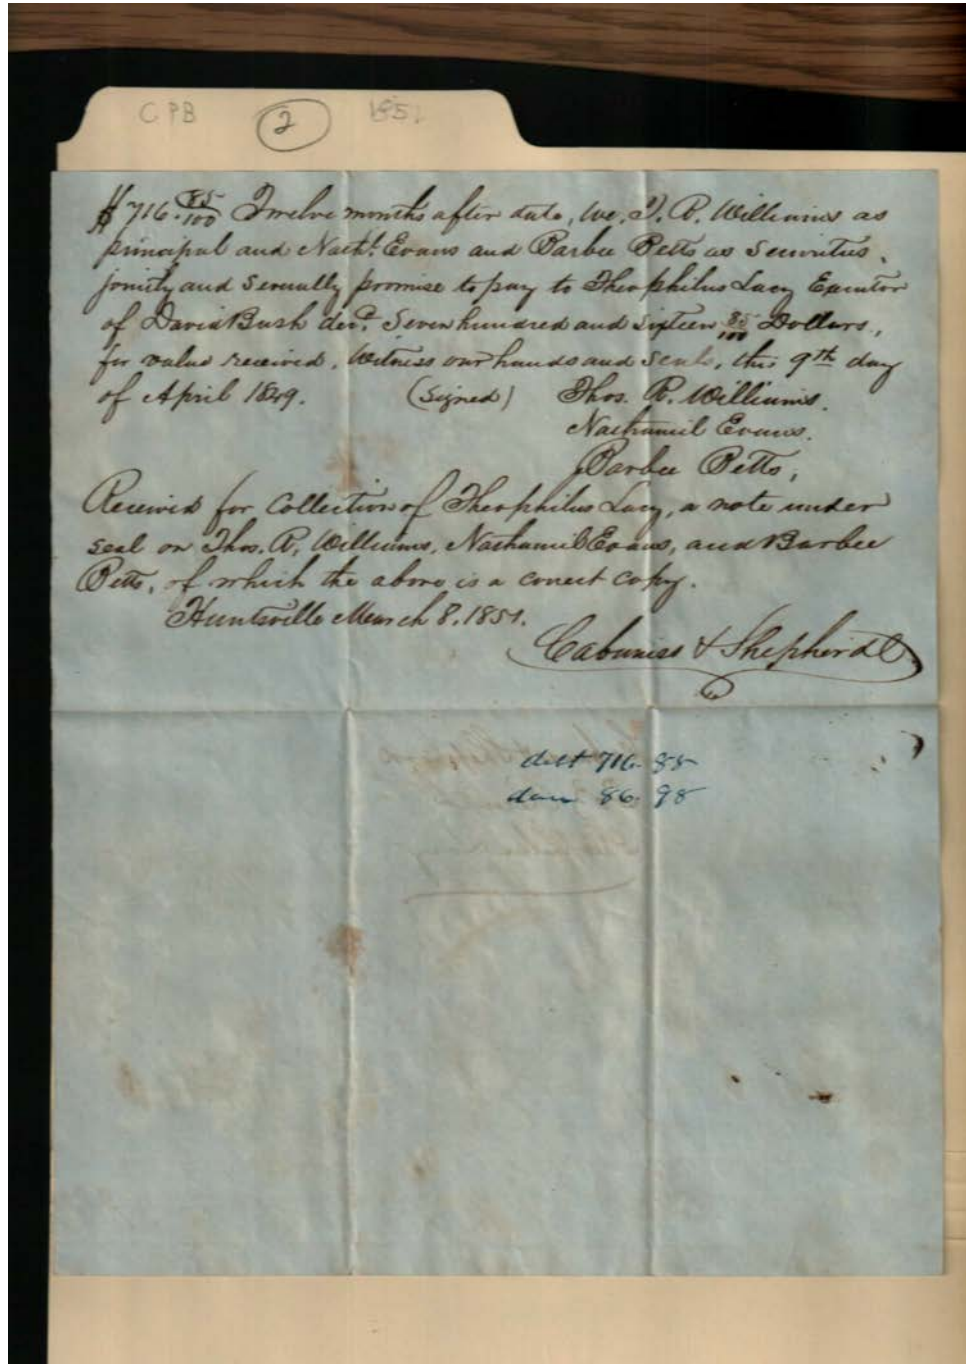 CPB 2 1851
$716.85/100 Twelve months after date, We, T. R. Williams as
principal and Nathl. Evans and Barbee Betts as Securities,
jointly and Severally promise to pay to Theophilus Lacy Executor
of David Bush decd. Seven hundred and Sixteen 85/100 Dollars,
for value received. Witness our hands and Seals, this 9th day
of April 1849. (Signed) Thos. R. Williams.
Nathaniel Evans.
Barbee Betts,
Received for Collection of Theophilus Lacy, a note under
seal on Thos. R. Williams, Nathaniel Evans, and Barbee
Betts, of which the above is a correct copy.
Huntsville March 8. 1851.
Cabaniss & Shepherd
debt 716.85
dam 86.98